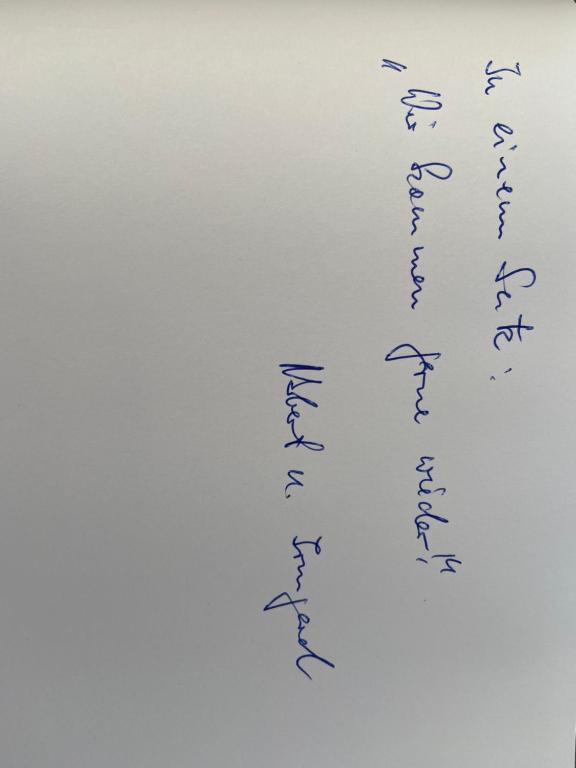 In einem Satz:
„Wir kommen gerne wieder!"
u. Irmgard